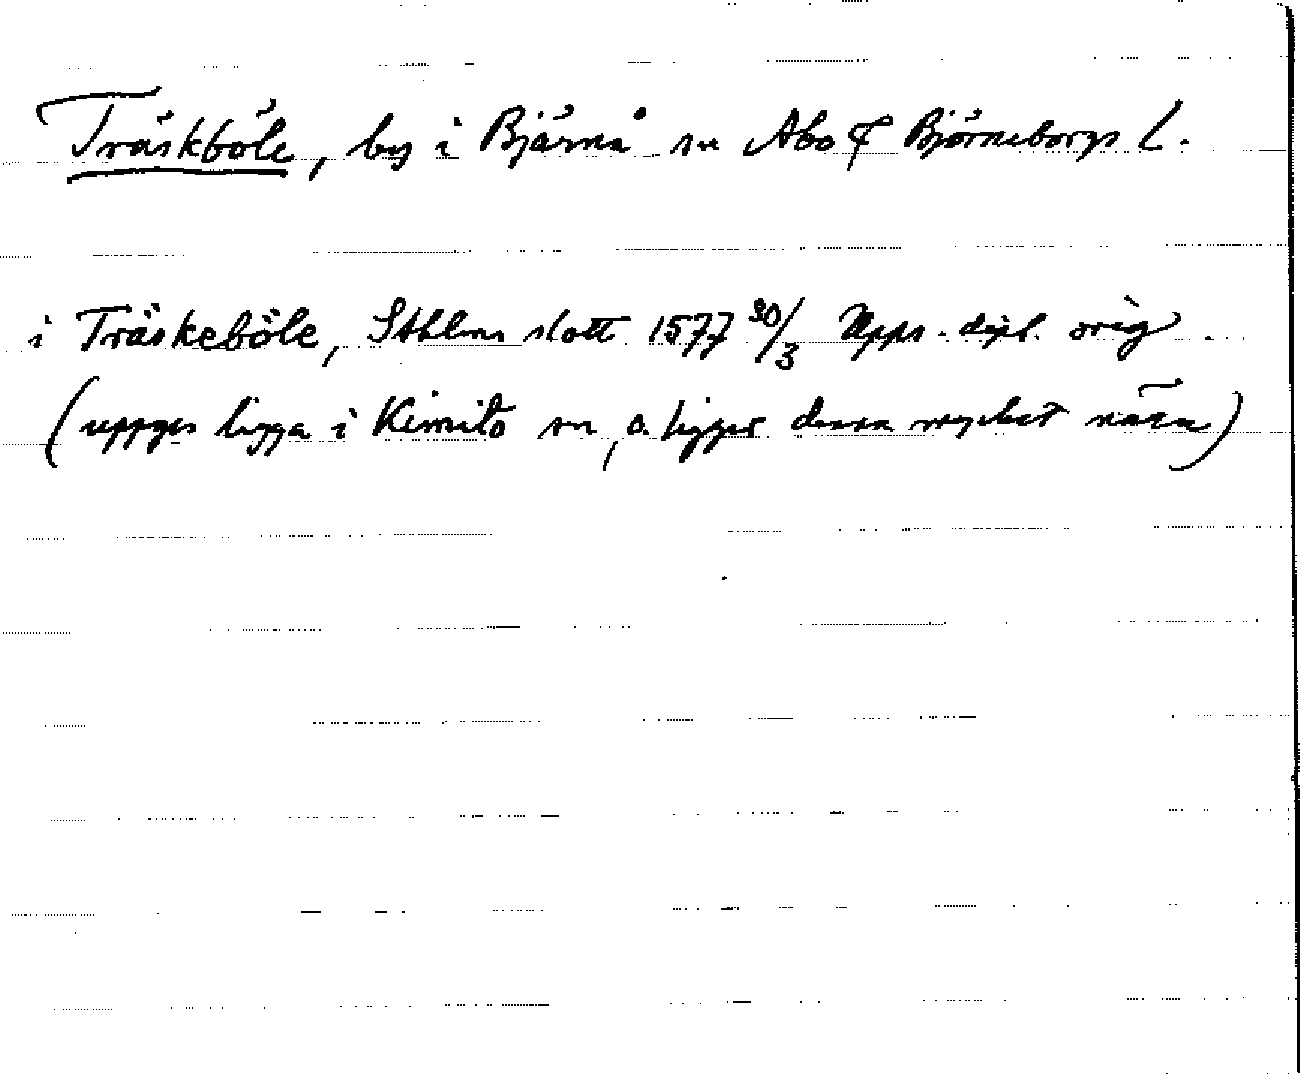 Träskböle, by i Bjärnå sn Åbo & Björneborgs L.
i Träskeböle, Sthlms slott 1577 30/3 Upps. dipl. orig.
(uppges ligga i Kimito sn, o. ligger denna mycket nära)